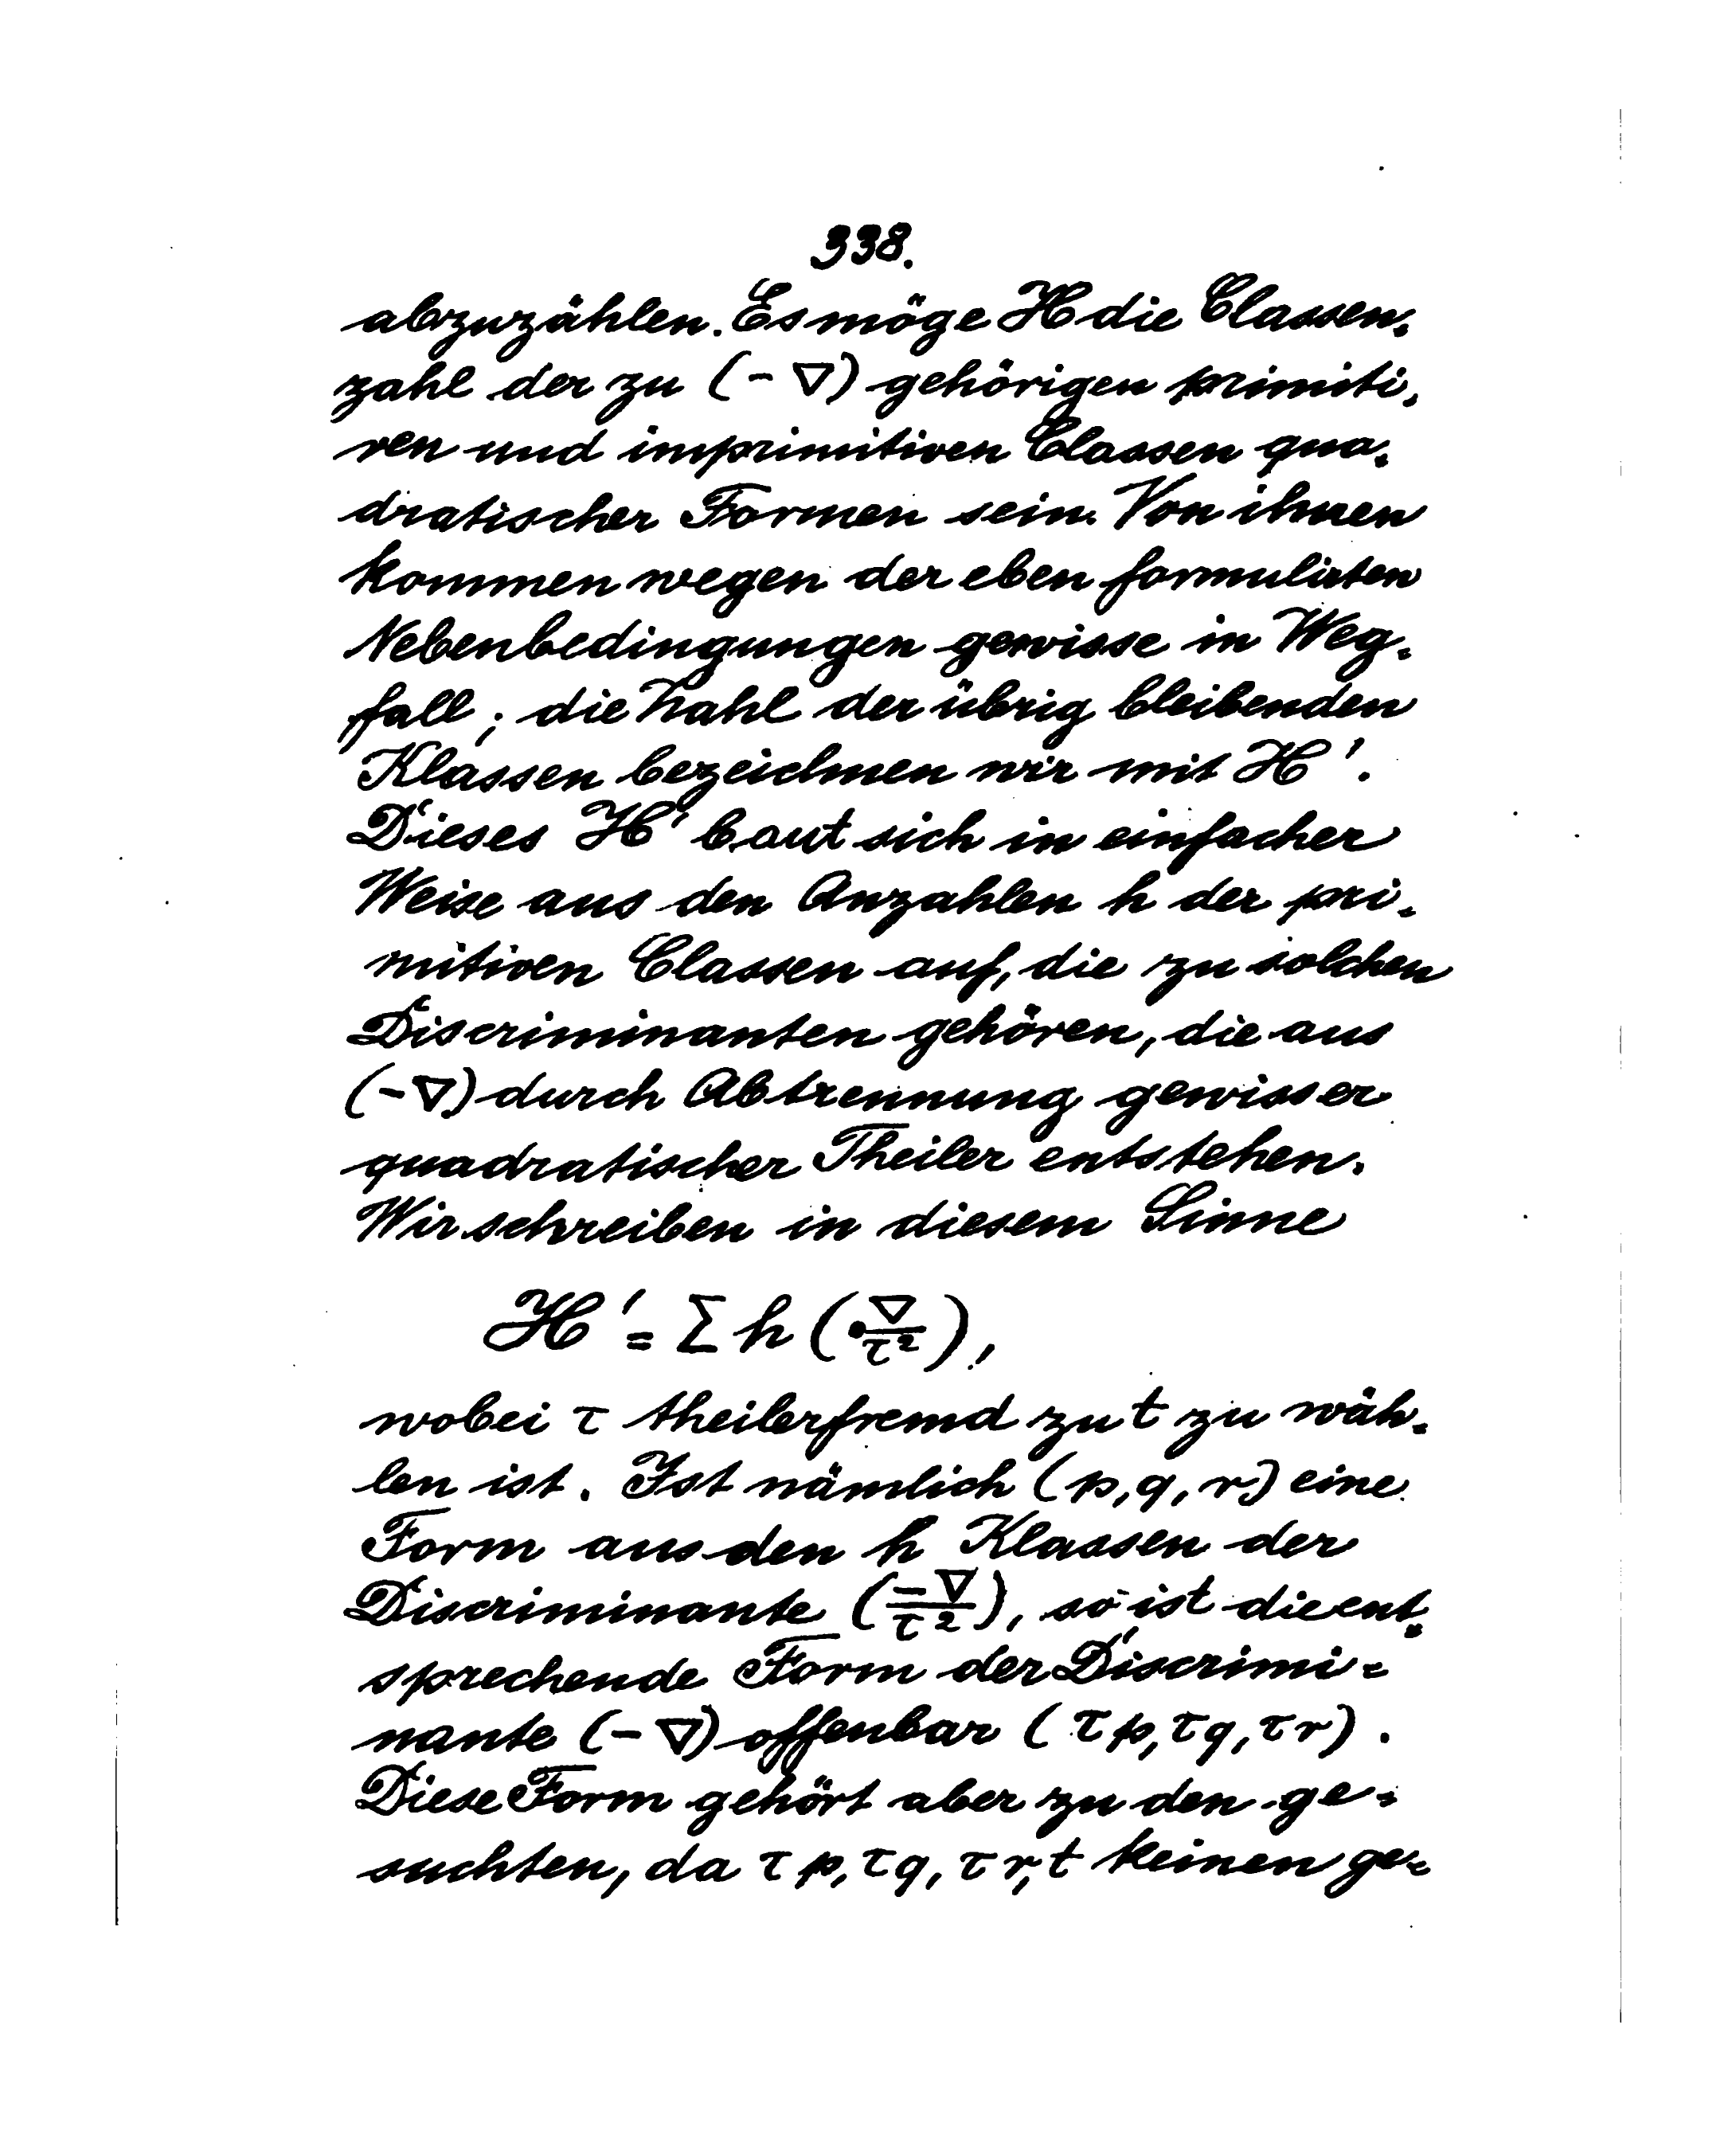 338.
abzuzählen. Es möge H die Classen-
zahl der zu (-∇) gehörigen primiti-
ven und imprimitiven Classen qua-
dratischer Formen sein. Von ihnen
kommen wegen der eben formulirten
Nebenbedingungen gewisse in Weg-
fall; die Zahl der übrig bleibenden
Klassen bezeichnen wir mit H'.
Dieses H' baut sich in einfacher
Weise aus den Anzahlen h der pri-
mitiven Classen auf, die zu solchen
Discriminanten gehören, die aus
(-∇) durch Abtrennung gewisser
quadratischer Theiler entstehen.
Wir schreiben in diesem Sinne
H' = Σ h (-∇/τ²),
wobei τ theilerfremd zu t zu wäh-
len ist. Ist nämlich (p, q, r) eine
Form aus den h Klassen der
Discriminante (-∇/τ²), so ist die ent-
sprechende Form der Discrimi-
nante (-∇) offenbar (τp, τq, τr).
Diese Form gehört aber zu den ge-
suchten, da τp, τq, τr, t keinen ge-